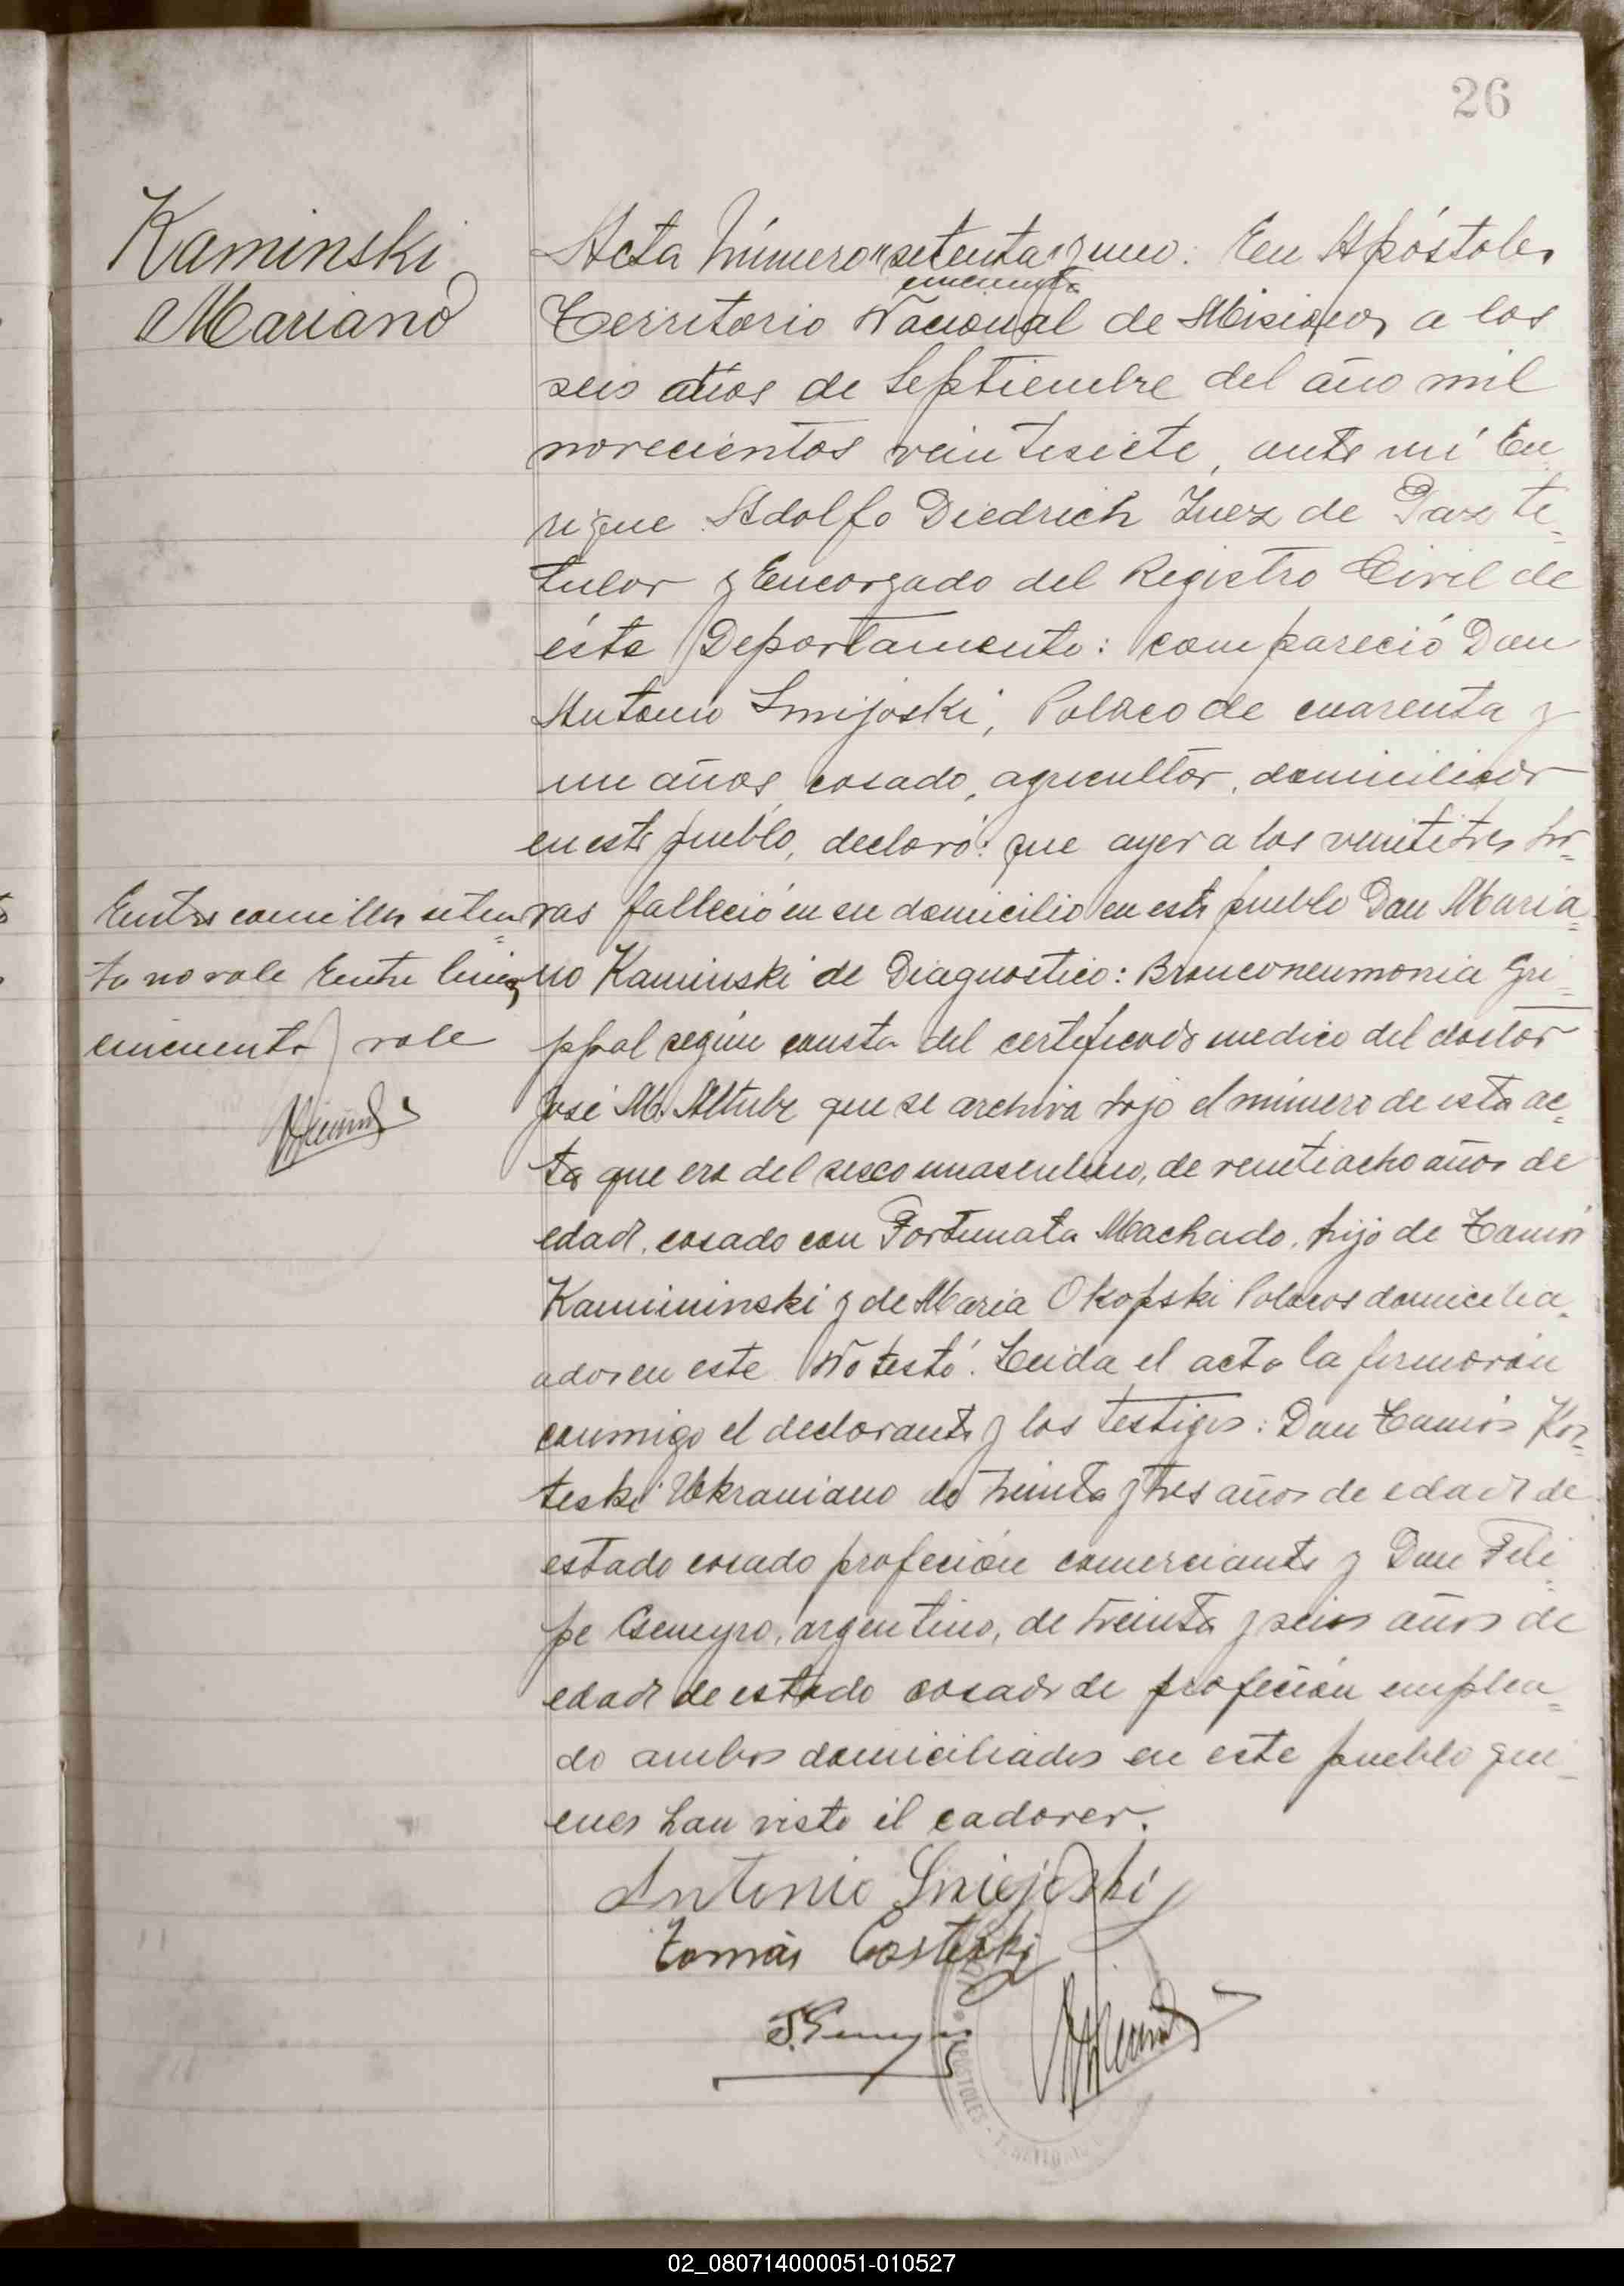 26
Kaminski
Mariano
Acta Número "setenta" y uno. En Apóstoles
cincuenta
Territorio Nacional de Misiones a los
seis días de Septiembre del año mil
novecientos veintesiete, ante mí En
rique Adolfo Diedrich Juez de Paz ti=
tular y Encargado del Registro Civil de
éste Departamento: compareció Don
Antonio Smijoski, Polaco de cuarenta y
un años, casado, agricultor, domiciliado
en este pueblo, declaró: que ayer a las veintitres ho=
ras falleció en su domicilio en este pueblo Don Maria=
no Kaminski de Diagnostico: Bronconeumonia Gri=
ppal según consta del certificado medico del doctor
José M. Altube que se archiva bajo el número de esta ac=
ta que era del sexo masculino, de veintiocho años de
edad, casado con Fortunata Machado, hijo de Tomás
Kamininski y de Maria Okopski Polacos domicilia=
ados en este No testó. Leida el acta la firmarón
conmigo el declarante y los testigos: Don Tomás Kos=
teski Ukraniano de treinta y tres años de edad de
estado casado profeción comerciante y Don Feli=
pe Geneyro, argentino, de treinta y seis años de
edad de estado casado de profeción emplea=
do ambos domiciliados en este pueblo qui=
enes han visto el cadaver.
Entre comillas seten=
ta no vale Entre lineas
cincuenta vale
Antonio Sniejoski
Tomás Costeski
F. Geneyro
APOSTOLES
02_080714000051-010527